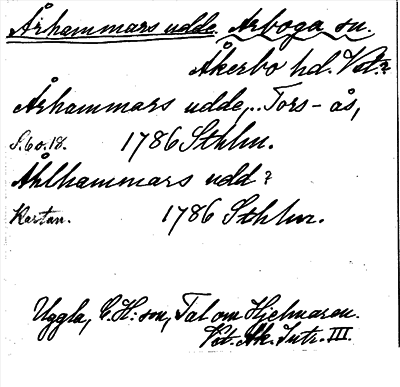 Århammars udde. Arboga sn.
Åkerbo hd. Vst.
Århammars udde,.. Tors-ås,
S. 60. 18. 1786 Sthlm.
Åhlhammars udd?
Kartan. 1786 Sthlm.
Uggla, C. H:son, Tal om Hjelmaren.
Vet. Ak. Intr. III.